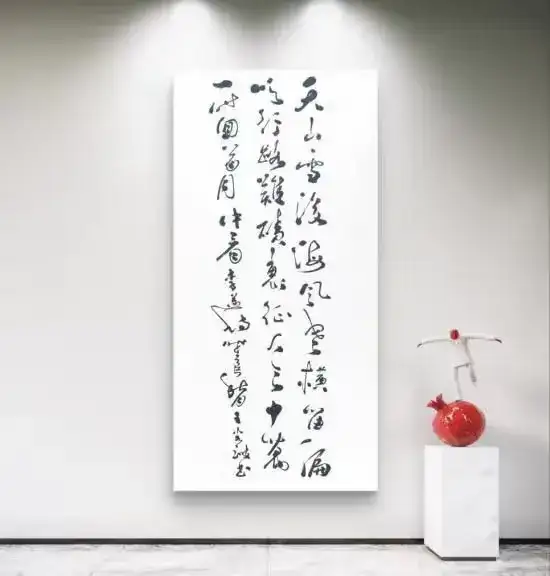 天山雪後海風寒橫笛偏
吹行路難磧裏征人三十萬
一時回首月中看 李益詩 王書